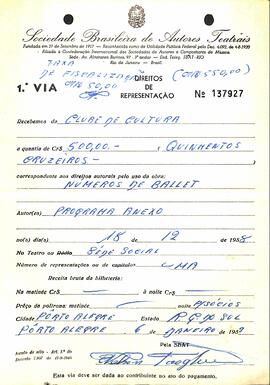 Sociedade Brasileira de Autores Teatrais
Fundada em 27 de Setembro de 1917 — Reconhecida como de Utilidade Pública Federal pelo Dec. 4.092, de 4-8-1920
Filiada à Confederação Internacional das Sociedades de Autores e Compositores de Música
Séde: Av. Almirante Barroso, 97 3º andar — End. Teleg. SBAT-RIO
Rio de Janeiro — Brasil
TAXA
DE FISCALIZAÇÃO (Cr$ 550,00)
Cr$ 50,00
1.ª VIA DIREITOS DE REPRESENTAÇÃO Nº 137927
Recebemos do CLUBE DE CULTURA
a quantia de Cr$ 500,00 - QUINHENTOS
CRUZEIROS -
correspondente aos direitos autorais pelo uso da obra:
NUMEROS DE BALLET
Autor(es) PROGRAMA ANEXO
no(s) dia(s) 18 12 de 1958
No Teatro ou Rádio SÉDE SOCIAL
Número de representações ou de capítulos UMA
Receita bruta da bilheteria:
Na matinée Cr$ — A noite Cr$
Preço da poltrona: matinée noite P/SÓCIOS
Cidade PÔRTO ALEGRE Estado R. G. DO SUL
PÔRTO ALEGRE 6 de JANEIRO de 1959
Pela SBAT
Isento de sêlo - Art. 1º do
Esta via deve ser dada ao contribuinte no ato do pagamento.